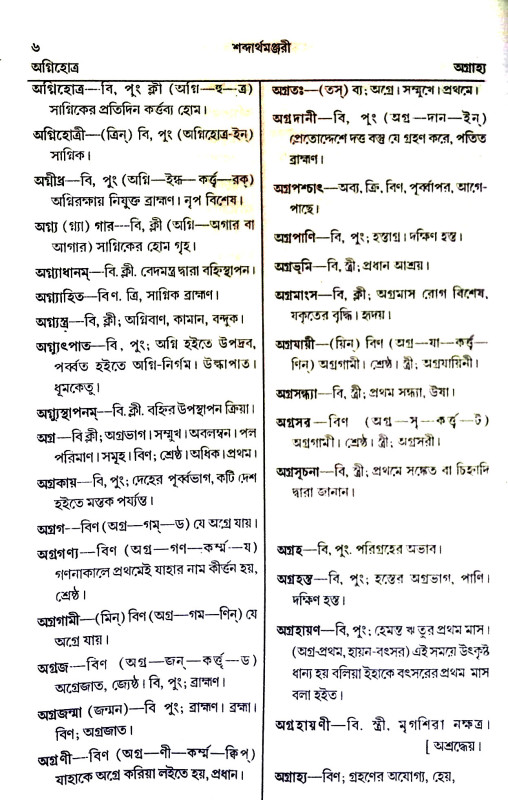 ৬
শব্দার্থমঞ্জরী
অগ্নিহোত্র
অগ্রাহ্য
অগ্নিহোত্র—বি, পুং ক্লী (অগ্নি—হু—ত্র)
সাগ্নিকের প্রতিদিন কর্ত্তব্য হোম।
অগ্নিহোত্রী—(ত্রিন্) বি, পুং (অগ্নিহোত্র-ইন্)
সাগ্নিক।
অগ্নীধ্র—বি, পুং (অগ্নি—ইন্ধ—কর্ত্তৃ—রক্)
অগ্নিরক্ষায় নিযুক্ত ব্রাহ্মণ। নৃপ বিশেষ।
অগ্ন্য (গ্ন্যা) গার—বি, ক্লী (অগ্নি—অগার বা
আগার) সাগ্নিকের হোম গৃহ।
অগ্ন্যাধানম্—বি. ক্লী. বেদমন্ত্র দ্বারা বহ্নিস্থাপন।
অগ্ন্যাহিত—বিণ. ত্রি, সাগ্নিক ব্রাহ্মণ।
অগ্ন্যস্ত্র—বি, ক্লী; অগ্নিবাণ, কামান, বন্দুক।
অগ্ন্যুৎপাত—বি, পুং; অগ্নি হইতে উপদ্রব,
পর্ব্বত হইতে অগ্নি-নির্গম। উল্কাপাত।
ধূমকেতু।
অগ্ন্যুপস্থাপনম্—বি. ক্লী. বহ্নির উপস্থাপন ক্রিয়া।
অগ্র—বি ক্লী; অগ্রভাগ। সম্মুখ। অবলম্বন। পল
পরিমাণ। সমূহ। বিণ; শ্রেষ্ঠ। অধিক। প্রথম।
অগ্রকায়—বি, পুং; দেহের পূর্ব্বভাগ, কটি দেশ
হইতে মস্তক পর্য্যন্ত।
অগ্রগ—বিণ (অগ্র—গম্—ড) যে অগ্রে যায়।
অগ্রগণ্য—বিণ (অগ্র—গণ—কর্ম্ম—য)
গণনাকালে প্রথমেই যাহার নাম কীর্ত্তন হয়,
শ্রেষ্ঠ।
অগ্রগামী—(মিন্) বিণ (অগ্র—গম—ণিন্) যে
অগ্রে যায়।
অগ্রজ—বিণ (অগ্র—জন্—কর্ত্তৃ—ড)
অগ্রেজাত, জ্যেষ্ঠ। বি, পুং; ব্রাহ্মণ।
অগ্রজন্মা (জন্মন)—বি পুং; ব্রাহ্মণ। ব্রহ্মা।
বিণ; অগ্রজাত।
অগ্রণী—বিণ (অগ্র—ণী—কর্ম্ম—ক্বিপ্)
যাহাকে অগ্রে করিয়া লইতে হয়, প্রধান।
অগ্রতঃ—(তস্) ব্য; অগ্রে। সম্মুখে। প্রথমে।
অগ্রদানী—বি, পুং (অগ্র—দান—ইন্)
প্রেতোদ্দেশে দত্ত বস্তু যে গ্রহণ করে, পতিত
ব্রাহ্মণ।
অগ্রপশ্চাৎ—অব্য, ক্রি, বিণ, পূর্ব্বাপর, আগে-
পাছে।
অগ্রপাণি—বি, পুং; হস্তাগ্র। দক্ষিণ হস্ত।
অগ্রভূমি—বি, স্ত্রী; প্রধান আশ্রয়।
অগ্রমাংস—বি, ক্লী; অগ্রমাস রোগ বিশেষ,
যকৃতের বৃদ্ধি। হৃদয়।
অগ্রযায়ী—(য়িন্) বিণ (অগ্র—যা—কর্ত্তৃ—
ণিন্) অগ্রগামী। শ্রেষ্ঠ। স্ত্রী; অগ্রযায়িনী।
অগ্রসন্ধ্যা—বি, স্ত্রী; প্রথম সন্ধ্যা, উষা।
অগ্রসর—বিণ (অগ্র—সৃ—কর্ত্তৃ—ট)
অগ্রগামী। শ্রেষ্ঠ। স্ত্রী; অগ্রসরী।
অগ্রসূচনা—বি, স্ত্রী; প্রথমে সঙ্কেত বা চিহ্নাদি
দ্বারা জানান।
অগ্রহ—বি, পুং. পরিগ্রহের অভাব।
অগ্রহস্ত—বি, পুং; হস্তের অগ্রভাগ, পাণি।
দক্ষিণ হস্ত।
অগ্রহায়ণ—বি, পুং; হেমন্ত ঋতুর প্রথম মাস।
(অগ্র-প্রথম, হায়ন-বৎসর) এই সময়ে উৎকৃষ্ট
ধান্য হয় বলিয়া ইহাকে বৎসরের প্রথম মাস
বলা হইত।
অগ্রহায়ণী—বি. স্ত্রী. মৃগশিরা নক্ষত্র।
[ অশ্রদ্ধেয়।
অগ্রাহ্য—বিণ; গ্রহণের অযোগ্য, হেয়,